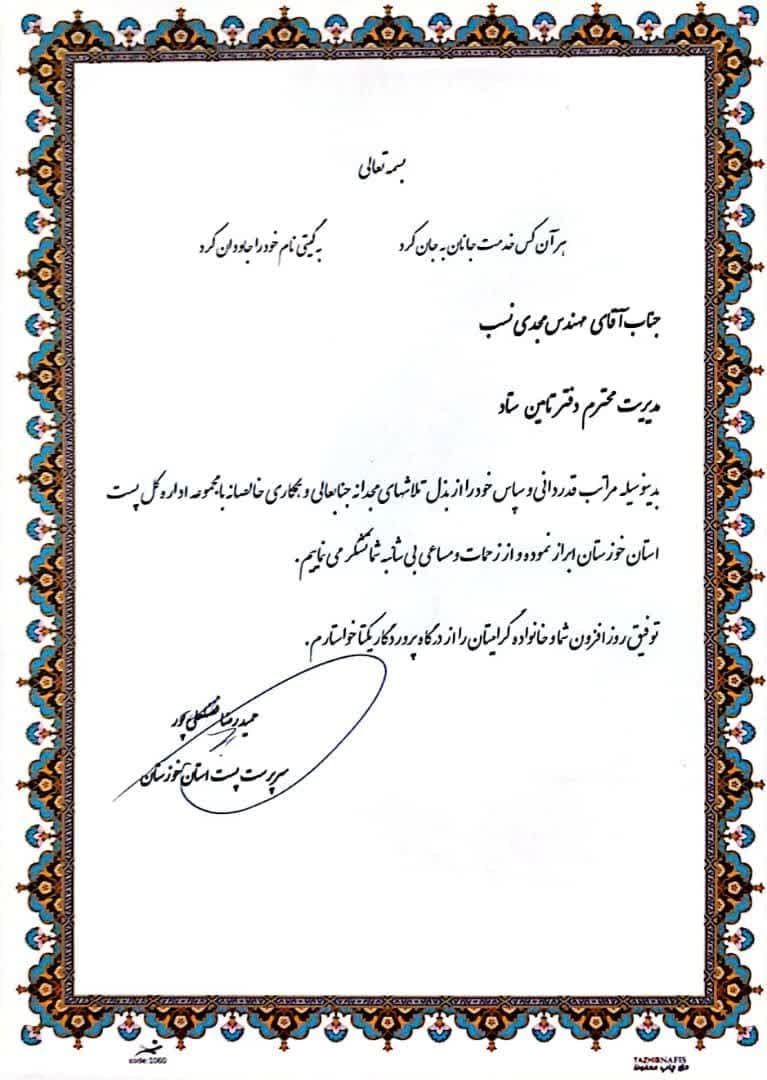 بسمه تعالی
هر آن کس خدمت جانان به جان کرد به گیتی نام خود را جاودان کرد
جناب آقای مهندس مجدی نسب
مدیریت محترم دفتر تامین ستاد
بدینوسیله مراتب قدردانی و سپاس خود را از بذل تلاشهای مجدانه جنابعالی و همکاری خالصانه با مجموعه اداره کل پست
استان خوزستان ابراز نموده و از زحمات و مساعی بی شائبه شما تشکر می نماییم.
توفیق روز افزون شما و خانواده گرامیتان را از درگاه پروردگار یکتا خواستارم.
حمیدرضا
سرپرست پست استان خوزستان
code:1060
TAZHIBNAFIS
حق چاپ محفوظ